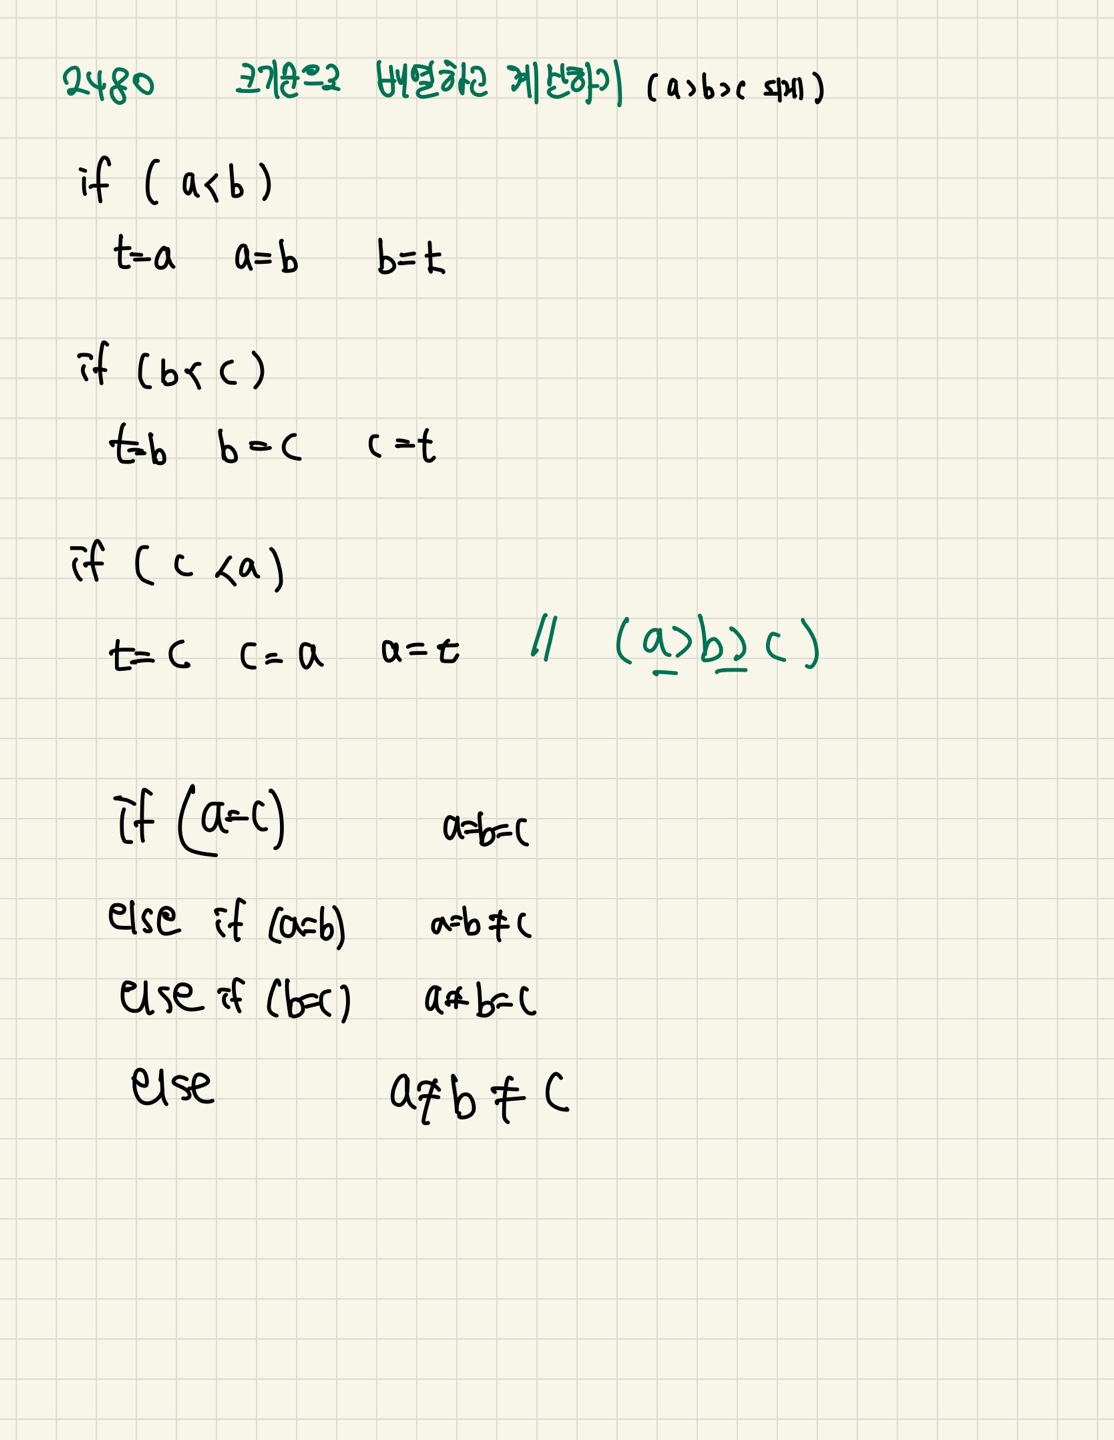 2480 크기순으로 배열하고 계산하기 (a>b>c 되게)
if (a<b)
t=a a=b b=t
if (b<c)
t=b b=c c=t
if (c<a)
t=c c=a a=t // (a>b>c)
if (a=c) a=b=c
else if (a=b) a=b≠c
else if (b=c) a≠b=c
else a≠b≠c